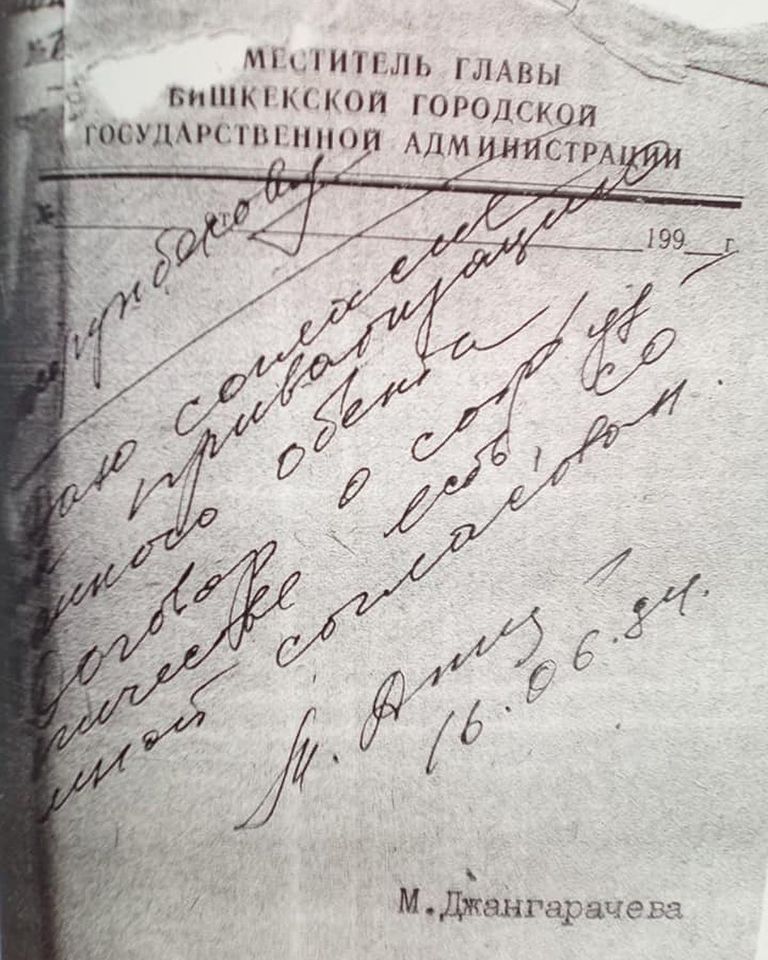 МЕСТИТЕЛЬ ГЛАВЫ
БИШКЕКСКОЙ ГОРОДСКОЙ
ГОСУДАРСТВЕННОЙ АДМИНИСТРАЦИИ
№ от 199 г.
даю согласие
к приватизацию
нного обекта!
Договор о сотруд
ничестве есть, со
мной согласован.
16.06.94.
М.Джангарачева